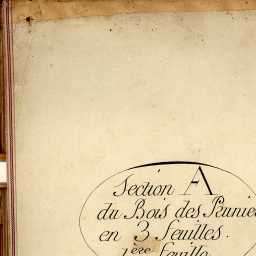 Section A
du Bois des Prunie
en 3 feuilles.
1ère feuille